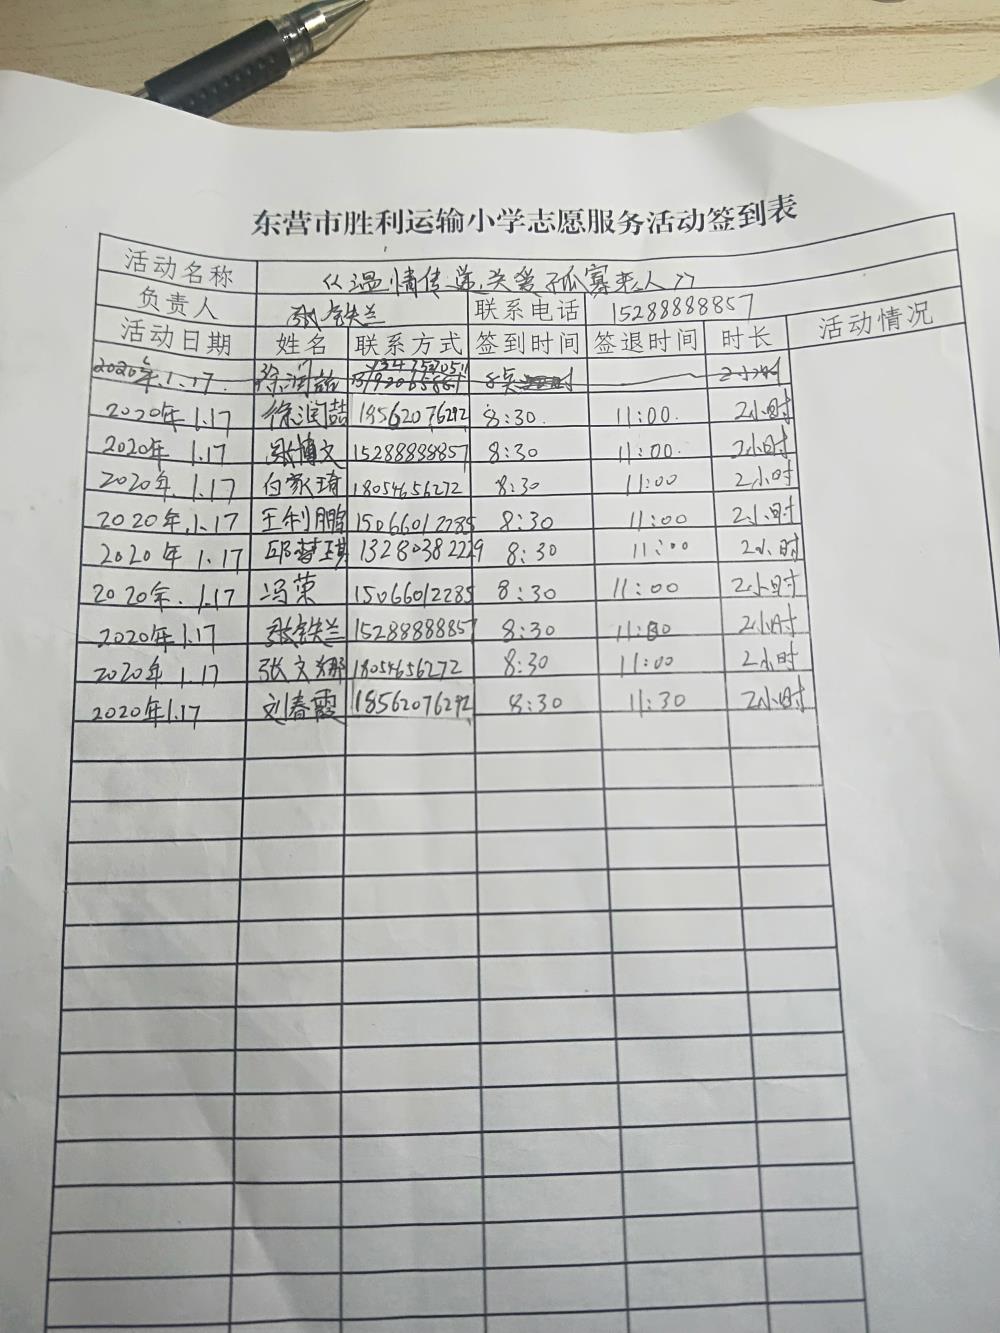 东营市胜利运输小学志愿服务活动签到表
活动名称 《温情传递,关爱孤寡老人》
负责人 张铁兰 联系电话 15288888857
活动日期 姓名 联系方式 签到时间 签退时间 时长 活动情况
2020年.1.17. 2小时
2020年1.17 徐润喆 18562076292 8:30. 11:00. 2小时
2020年 1.17 张博文 15288888857 8:30 11:00. 2小时
2020年.1.17 白家琦 18054656272 8:30 11:00 2小时
2020年.1.17 王利鹏 15066012285 8:30 11:00 2小时
2020年 1.17 邱梦琪 13280382229 8:30 11:00 2小时
2020年.1.17 冯荣 15066012285 8:30 11:00 2小时
2020年1.17 张铁兰 15288888857 8:30 2小时
2020年 1.17 张文娜 18054656272 8:30 11:00 2小时
2020年1.17 刘春霞 18562076292 8:30 11:30 2小时